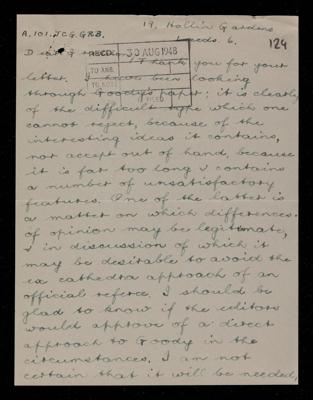 19, Hollin Gardens
Leeds 6.
A.101.JCG.GRB.
124
RECD. 30 AUG 1948
TO ANS.
FILED
Thank you for your
letter. I have been looking
through Goody's paper; it is clearly
of the difficult type which one
cannot reject, because of the
interesting ideas it contains,
nor accept out of hand, because
it is far too long & contains
a number of unsatisfactory
features. One of the latter is
a matter on which differences
of opinion may be legitimate,
& in discussion of which it
may be desirable to avoid the
ex cathedra approach of an
official referee. I should be
glad to know if the editors
would approve of a direct
approach to Goody in the
circumstances. I am not
certain that it will be needed,